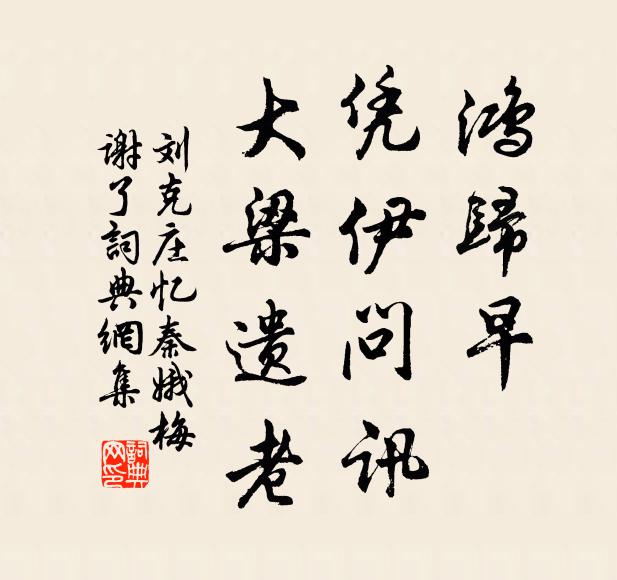 鸿歸早
凭伊问讯
大梁遗老
刘克庄忆秦娥梅
谢了詞典網集
詞典
网印